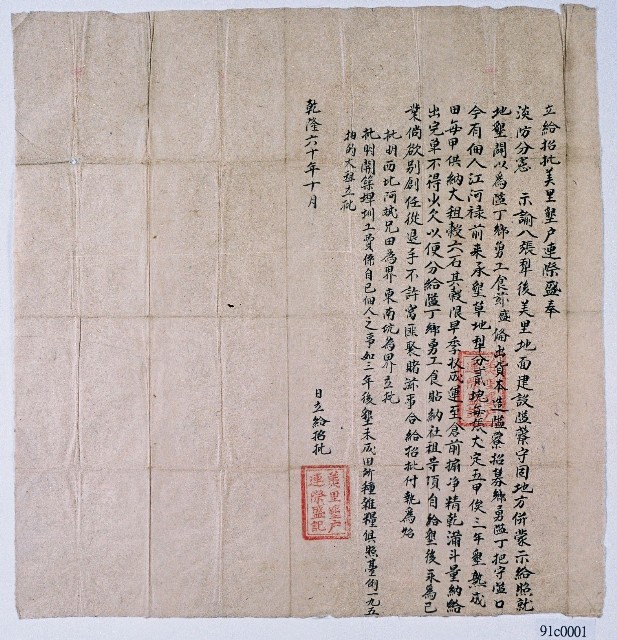 立給招批美里墾戶連際盛奉
淡防分憲　示諭八張犁後美里地面建設隘藔守固地方併蒙示給照就
地墾開以為隘丁鄉勇工食等盛俻出資本造隘藔招募鄉勇隘丁把守隘口
今有佃人江河祿前來承墾草地犁分貳塊每張大定五甲俟三年墾熟成
田每甲供納大租穀六石其穀限早季收成運至倉前搧净精乾滿斗量納給
出完单不得少欠以便分給隘丁鄉勇工食貼納社租等項自給墾後永為己
業倘欲別創任從退手不許窩匪聚賭滋事合給招批付執為炤
批明西北阿斌兄田為界東南坑為界立批
批明開築埤圳工費係自己佃人之事如三年後墾未成田所種雜糧俱照臺例一九五
抽的大租立批
乾隆六十年十月
日立給招批
美里墾戶
連際盛記
91c0001